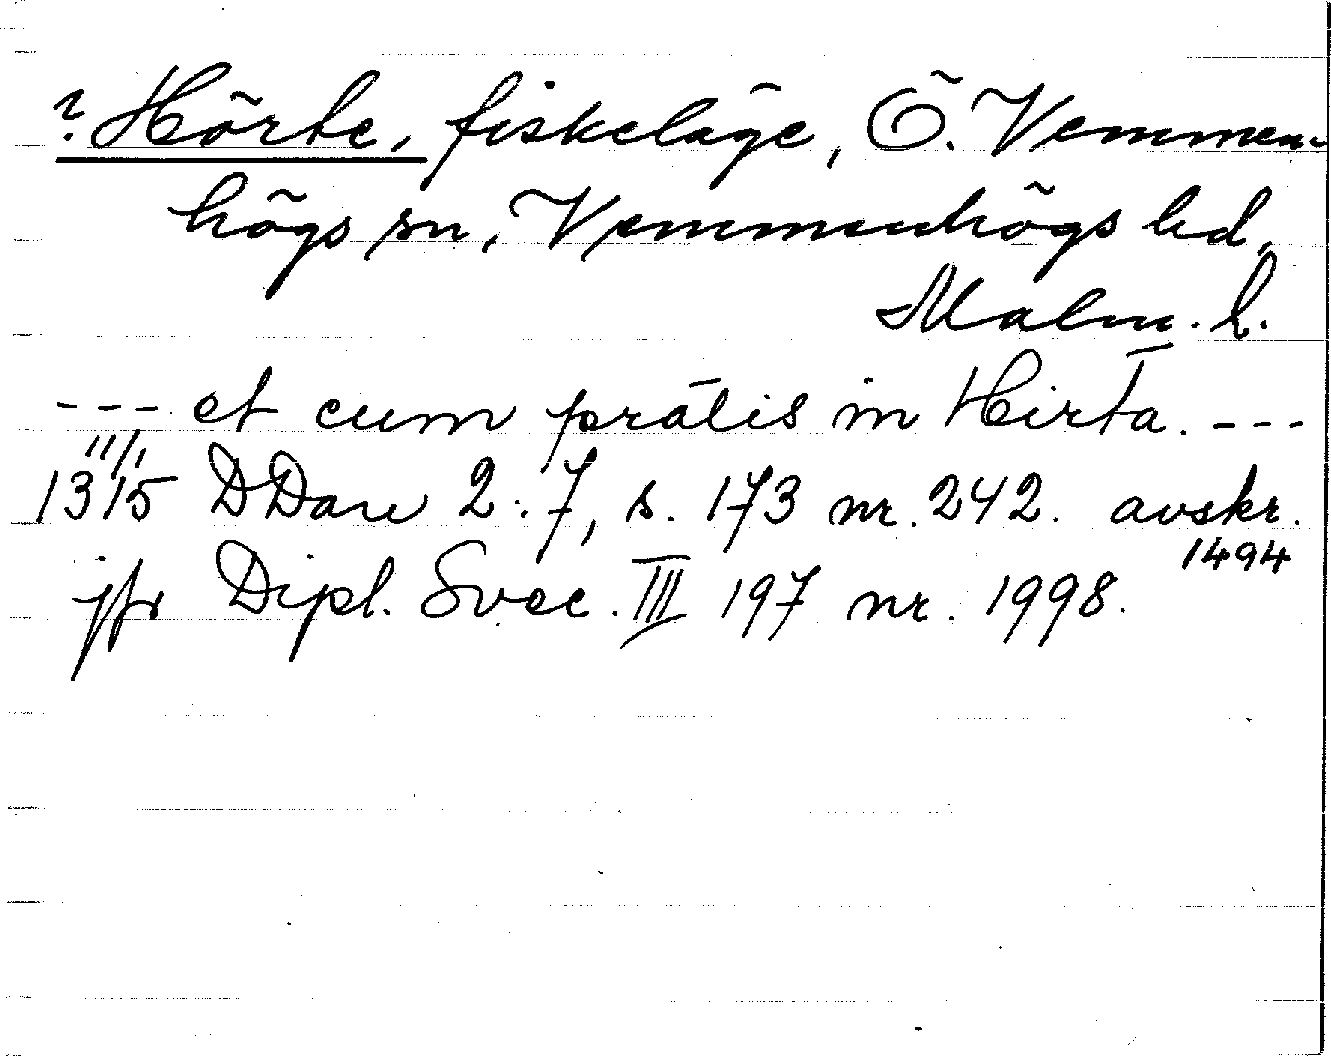 ? Hörte, fiskeläge, Ö. Vemmen-
högs sn, Vemmenhögs hd,
Malm. l.
--- et cum prātis in Hirta. ---
11/1
1315 DDan 2:7, s. 173 nr. 242. avskr.
1494
jfr Dipl. Svec. III 197 nr. 1998.